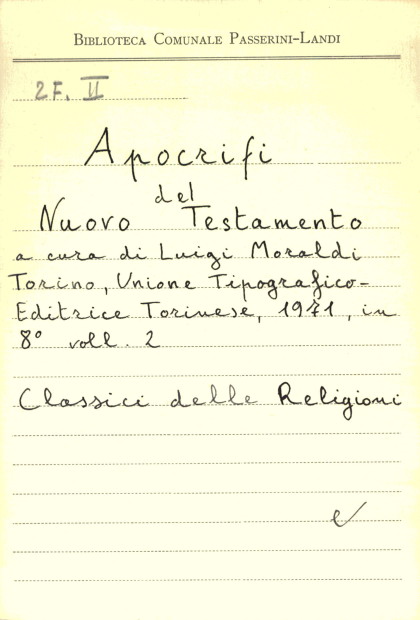 BIBLIOTECA COMUNALE PASSERINI-LANDI
2F. II
Apocrifi
del
Nuovo Testamento
a cura di Luigi Moraldi
Torino, Unione Tipografico-
Editrice Torinese, 1971, in
8° voll. 2
Classici delle Religioni